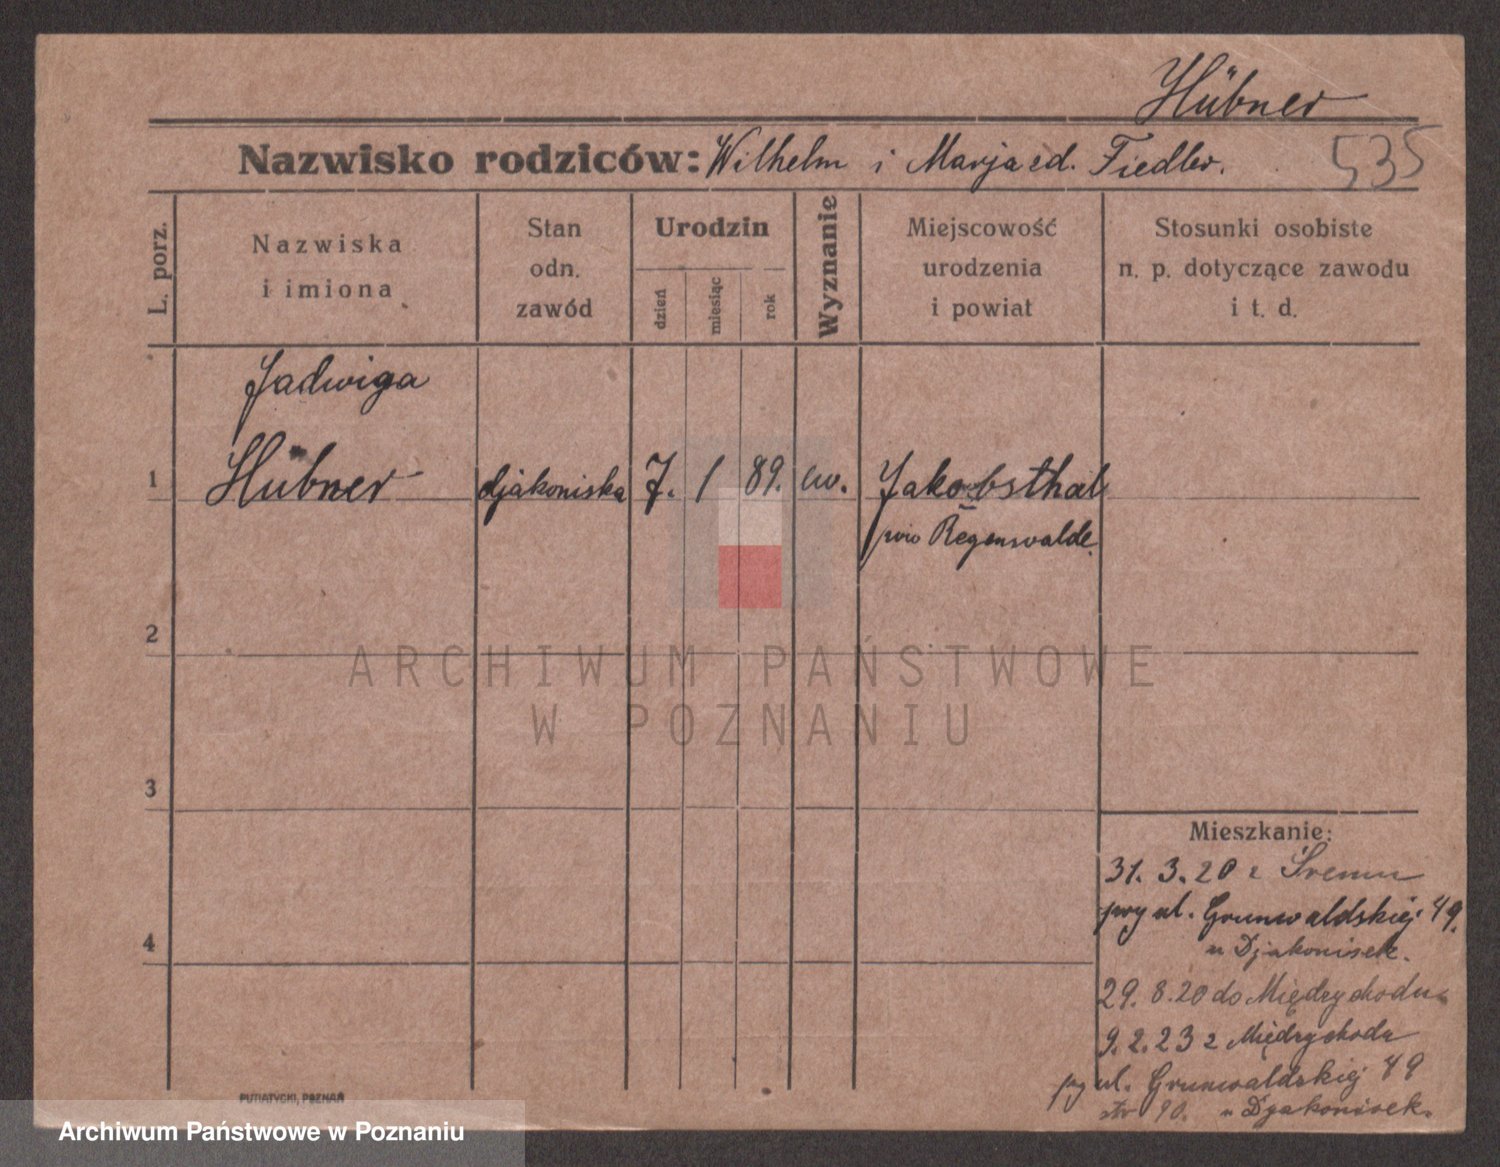 Hübner
Nazwisko rodziców: Wilhelm i Marja zd. Fiedler.
535
L. porz.
Nazwiska
i imiona
Stan
odn.
zawód
Urodzin
dzień
miesiąc
rok
Wyznanie
Miejscowość
urodzenia
i powiat
Stosunki osobiste
n. p. dotyczące zawodu
i t. d.
Jadwiga
1 Hübner djakoniska 7. 1 89. ew. Jakobsthal
pow Regenwalde.
2
3
4
Mieszkanie:
31. 3. 20 z Śremu
przy ul. Grunwaldskiej 49.
u Djakonisek.
29. 8. 20 do Międzychodu
9. 2. 23 z Międzychodu
przy ul. Grunwaldzkiej 49
90. u Djakonisek.
PUTIATYCKI, POZNAŃ
ARCHIWUM PAŃSTWOWE
W POZNANIU
Archiwum Państwowe w Poznaniu